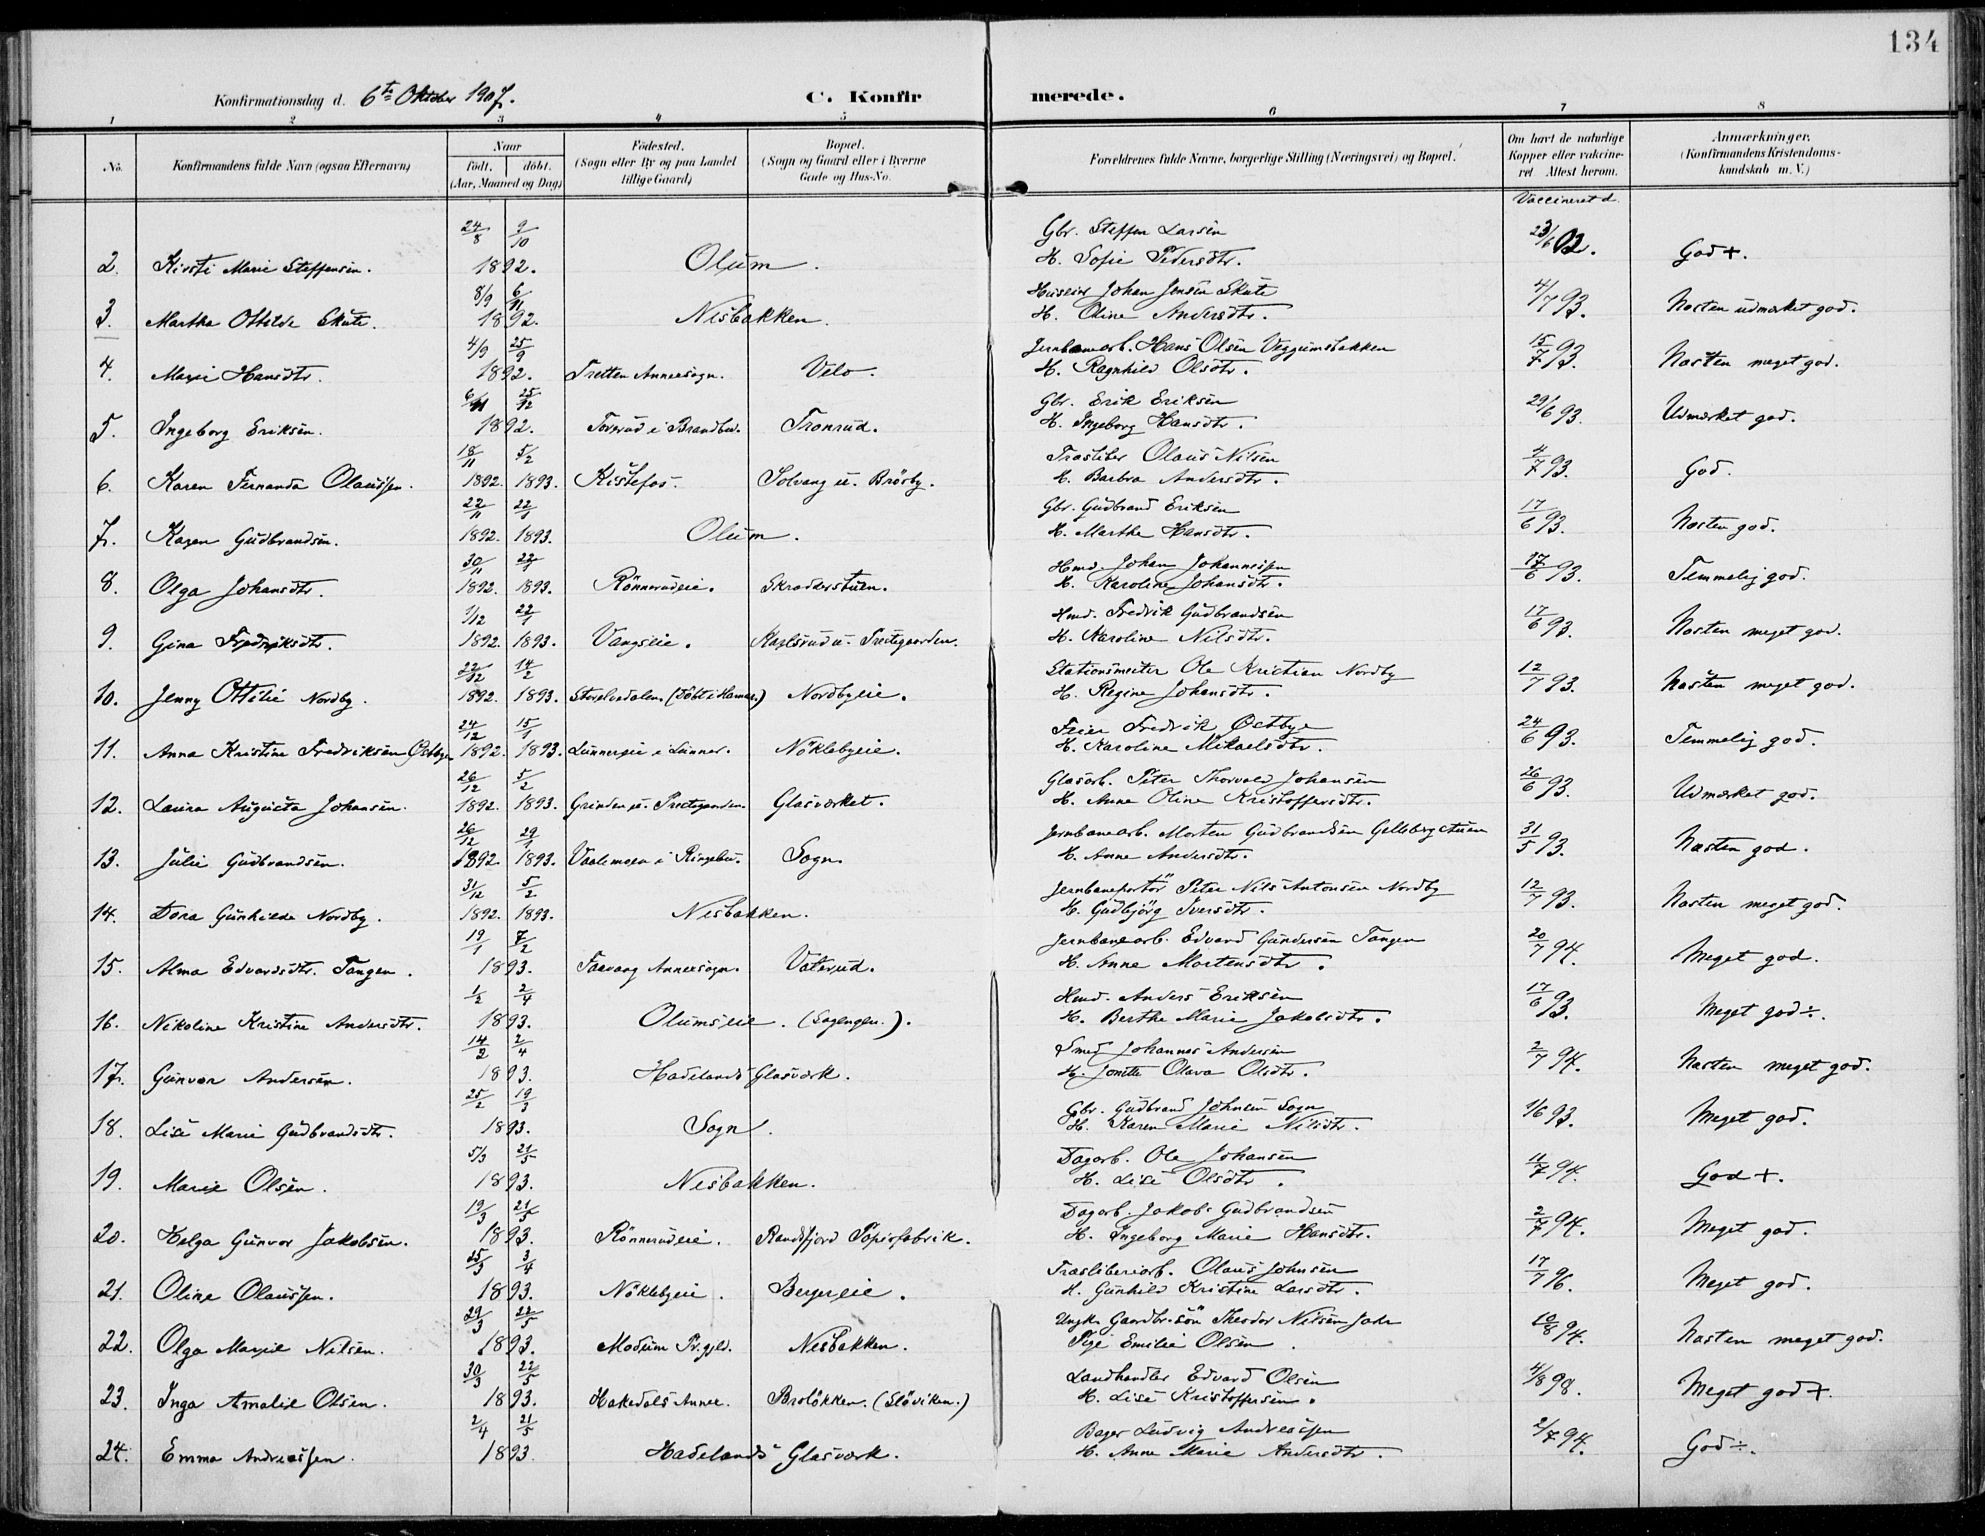 134
Konfirmationsdag d. 6te Oktober 1907.
C. Konfirmerede.
1 2 3 4 5 6 7 8
No. Konfirmandens fulde Navn (ogsaa Efternavn) Naar født, døbt. (Aar, Maaned og Dag) Fødested. (Sogn eller By og paa Landet tillige Gaard) Bopæl. (Sogn og Gaard eller i Byerne Gade og Hus-No. Forældrenes fulde Navne, borgerlige Stilling (Næringsvei) og Bopæl. Om havt de naturlige Kopper eller vaccineret. Attest herom. Anmærkninger. (Konfirmandens Kristendomskundskab m. V.)
Vaccineret d.
2. Kirsti Marie Steffensen. 24/8 9/10 1892. Olum. Gbr. Steffen Larsen H. Sofie Pedersdtr. 23/6 02. God +.
3. Marthe Ottilde Skute. 8/9 6/11 1892. Nesbakken. Huseier Johan Jensen Skute H. Oline Andersdtr. 4/7 93. Næsten udmærket god.
4. Marie Hansdtr. 4/9 25/9 1892. Tretten Annexsogn. Velo. Jernbanearb. Hans Olsen Veggumsbakken H. Ragnhild Olsdtr. 15/7 93. Næsten meget god.
5. Ingeborg Eriksen. 6/11 25/12 1892. i Brandbu. Tronrud. Gbr. Erik Eriksen H. Ingeborg Hansdtr. 29/6 93. Udmærket god.
6. Karen Fernanda Olaussen. 18/11 1892. 5/2 1893. Kistefos. Solvang u. Brösby. Træsliber Olaus Nilsen H. Barbra Andersdtr. 4/7 93. God.
7. Karen Gudbrandsen. 22/11 1892. 22/1 1893. Olum. Gbr. Gudbrand Eriksen H. Marthe Hansdtr. 17/6 93. Næsten god.
8. Olga Johansdtr. 30/11 1892. 22/1 1893. Rönnerudeie. Skrædderstuen. Hmd. Johan Johannessen H. Karoline Johansdtr. 17/6 93. Temmelig god.
9. Gina Fredriksdtr. 1/12 1892. 22/1 1893. Vangseie. Karlsrud u. Prestegaarden. Hmd. Fredrik Gudbrandsen H. Karoline Nilsdtr. 17/6 93. Næsten meget god.
10. Jenny Ottilie Nordby. 22/12 1892. 14/2 1893. Storelvedalen (döbt i Hamar.) Nordbyeie. Stationsmester Ole Kristian Nordby H. Regine Johansdtr. 12/7 93. Næsten meget god.
11. Anna Kristine Fredriksen Östbye 24/12 1892. 15/1 1893. Lunnereie i Lunner. Nöklebyeie. Feier Fredrik Östbye H. Karoline Mikaelsdtr. 24/6 93. Temmelig god.
12. Laura Augusta Johansen. 26/12 1892. 5/2 1893. Grinden u. Prestegaarden. Glasværket. Glasarb. Peter Thorvald Johansen H. Anne Oline Kristoffersdtr. 26/6 93. Udmærket god.
13. Julie Gudbrandsen. 26/12 1892. 29/1 1893. Vaalemoen i Ringebu. Sogn. Jernbanearb. Morten Gudbrandsen H. Anne Andersdtr. 31/5 93. Næsten god.
14. Dora Gunhilde Nordby. 31/12 1892. 5/2 1893. Nesbakken. Jernbaneportör Peter Nils Antonsen Nordby H. Gudbjörg Iversdtr. 12/7 93. Næsten meget god.
15. Alma Edvardsdtr. Tangen. 19/1 7/2 1893. Faavang Annexsogn. Vaterud. Jernbanearb. Edvard Gundersen Tangen H. Anne Mortensdtr. 20/7 94. Meget god.
16. Nikoline Kristine Andersdtr. 1/2 2/4 1893. Olumseie. (Sagengen.). Hmd. Anders Eriksen H. Berthe Marie Jakobsdtr. 17/6 93. Meget god ÷.
17. Gunvor Andersen. 14/2 2/4 1893. Hadelands Glasværk. Smed Johannes Andersen H. Jonette Olava Olsdtr. 2/7 94. Næsten meget god.
18. Lise Marie Gudbrandsdtr. 25/2 19/3 1893. Sogn. Gbr. Gudbrand Johnsen Sogn H. Karen Marie Nilsdtr. 1/6 93. Meget god.
19. Marie Olsen. 5/3 21/5 1893. Nesbakken. Dagarb. Ole Johansen H. Lise Olsdtr. 11/7 94. God +.
20. Helga Gunvor Jakobsen. 19/3 21/5 1893. Rönnerudeie. Randsfjord Papirfabrik. Dagarb. Jakob Gudbrandsen H. Ingeborg Marie Hansdtr. 2/7 94. Meget god.
21. Oline Olaussen. 25/3 3/4 1893. Nöklebyeie. Bergereie. Træsliberiarb. Olaus Johnsen H. Gunhild Kristine Larsdtr. 17/7 96. Meget god.
22. Olga Marie Nilsen. 29/3 22/5 1893. Modum Pr.gjld. Nesbakken. Ungk. Gaardbr.sön Theodor Nilsen Pige Emilie Olsen. 10/8 94. Næsten meget god.
23. Inga Amalie Olsen. 30/3 22/5 1893. Hakedals Annex. Bralökken. (Slöviken.) Landhandler Edvard Olsen H. Lise Kristoffersen. 4/8 98. Meget god +.
24. Emma Andreassen. 2/4 21/5 1893. Hadelands Glasværk. Bager Ludvig Andreassen H. Anne Marie Andersdtr. 2/7 94. God ÷.